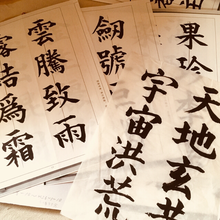 果珍
劒號
天地玄黃
宇宙洪荒
雲騰致雨
露結爲霜